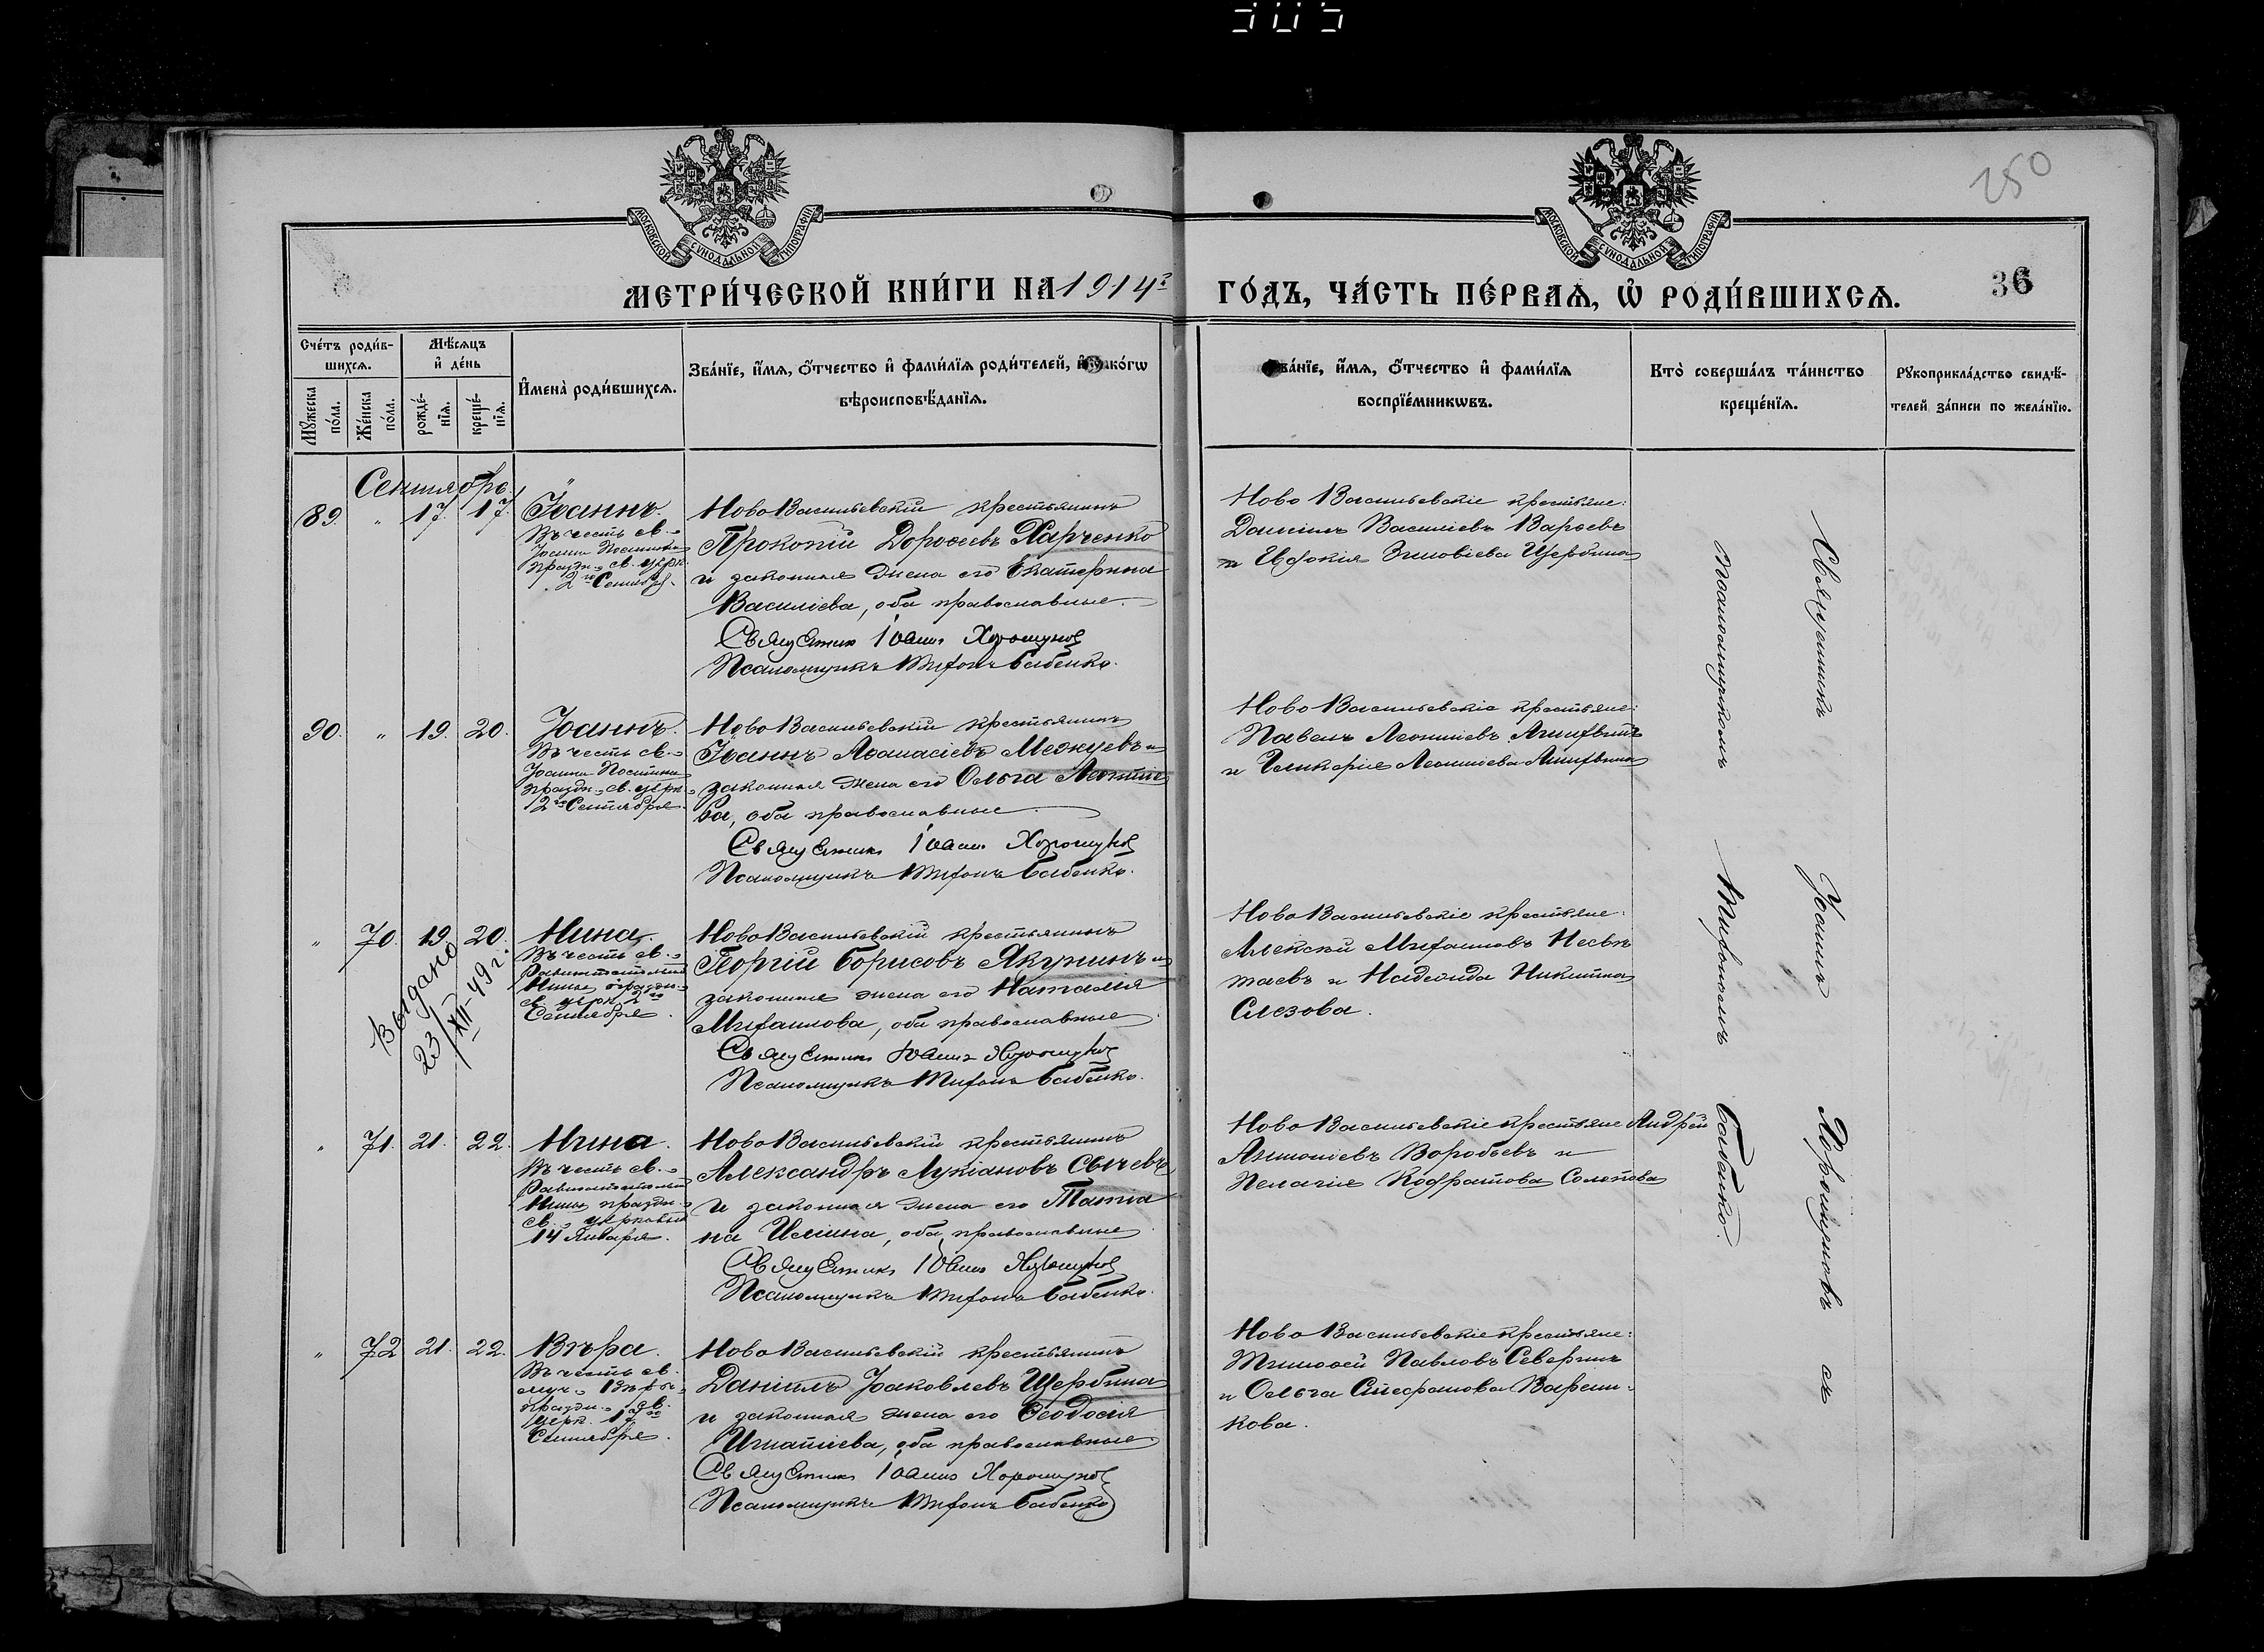 305
250
МОСКОВСКОЙ СѴНОДАЛЬНОЙ ТИПОГРАФІИ
МОСКОВСКОЙ СѴНОДАЛЬНОЙ ТИПОГРАФІИ
МЕТРИ́ЧЕСКОЙ КНИ́ГИ НА 1914 г.
ГО́ДЪ, ЧА́СТЬ ПЕ́РВАѦ, Ѡ҆ РОДИ́ВШИХСѦ.
36
Сче́тъ роди́в-
шихсѧ.
Мꙋжеска
по́ла.
Же́нска
по́ла.
Мѣ́сѧцъ
и҆ де́нь
рожде́-
нїѧ.
креще́-
нїѧ.
И҆мена̀ роди́вшихсѧ.
Зва́нїе, и҆́мѧ, ѻ҆́тчество и҆ фами́лїѧ роди́телей, и҆ како́гѡ
вѣроисповѣ́данїѧ.
Зва́нїе, и҆́мѧ, ѻ҆́тчество и҆ фами́лїѧ
воспрїе́мникѡвъ.
Кто̀ соверша́лъ та́инство
креще́нїѧ.
Рꙋкоприкла́дство свидѣ́-
телей за́писи по жела́нїю.
Сентябрь.
89. " 17. 17. Іоаннъ.
Въ честь св.
Іоанна Постника
праздн. св. церк.
2го Сентябр.
Ново Васильевскій крестьянинъ
Прокопій Дороѳеевъ Харченко
и законная жена его Екатерина
Василіева, оба православные.
Священник Іоанн Хорошунов
Псаломщикъ Тифонъ Бабенко.
Ново Васильевскіе крестьяне:
Даніилъ Василіевъ
и Евдокія Зиновіева Щербина
90. " 19. 20. Іоаннъ.
Въ честь св.
Іоанна Постника
праздн. св. церк.
2го Сентября
Ново Васильевскій крестьянинъ
Іоаннъ Аѳанасіевъ Межуевъ и
законная жена его Ольга Леонтіе
ва, оба православные
Священникъ Іоанн Хорошунов
Псаломщикъ Тифонъ Бабенко.
Ново Васильевскіе крестьяне:
Павелъ Леонтіевъ
и Гликерія Леонтіева
" 70. 19. 20. Нина.
Въ честь св.
Равноапостольной
Нины праздн.
св. церк. 2го
Сентября.
Выдано
23/XII-49 г.
Ново Васильевскій крестьянинъ
Георгій Борисовъ Якунинъ и
законная жена его Наталія
Михаилова, оба православные
Священникъ Іоаннъ Хорошунов
Псаломщикъ Тифонъ Бабенко.
Ново Васильевскіе крестьяне:
Алексій Михаиловъ Несвѣ
таевъ и Надежда Никитина
Слезова.
" 71. 21. 22. Нина.
Въ честь св.
Равноапостольной
Нины праздн.
св. церковью
14 Января.
Ново Васильевскій крестьянинъ
Александръ Лукіановъ Сычевъ
и законная жена его Татіа
на Иліина, оба православные
Священникъ Іоанн Хорошунов
Псаломщикъ Тифонъ Бабенко.
Ново Васильевскіе крестьяне Андрей
Антоніевъ Воробьевъ и
Пелагія Кодратова Солопова
" 72 21. 22. Вѣра.
Въ честь св.
муч. Вѣры
праздн. св.
церк. 17го
Сентября.
Ново Васильевскій крестьянинъ
Даніилъ Іаковлевъ Щербина
и законная жена его Ѳеодосія
Игнатіева, оба православные
Священникъ Іоаннъ Хорошунов
Псаломщикъ Тифонъ Бабенко
Ново Васильевскіе крестьяне:
Тимоѳей Павловъ Северинъ
и Ольга Стефанова Варени-
кова.
Священникъ Іоаннъ Хорошуновъ съ
псаломщикомъ Тифономъ Бабенко.